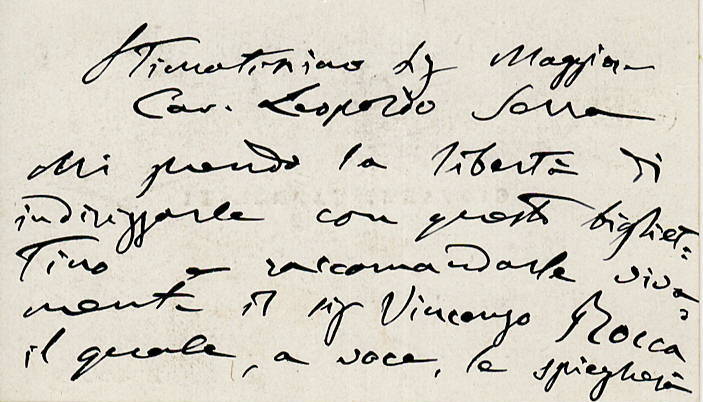 Stimatissimo Sig Maggior
Cav. Leopoldo Serra
Mi prendo la libertà di
indirizzarle con questo bigliet=
tino e raccomandarle viva=
mente il sig Vincenzo Rocca
il quale, a voce, le spiegherà